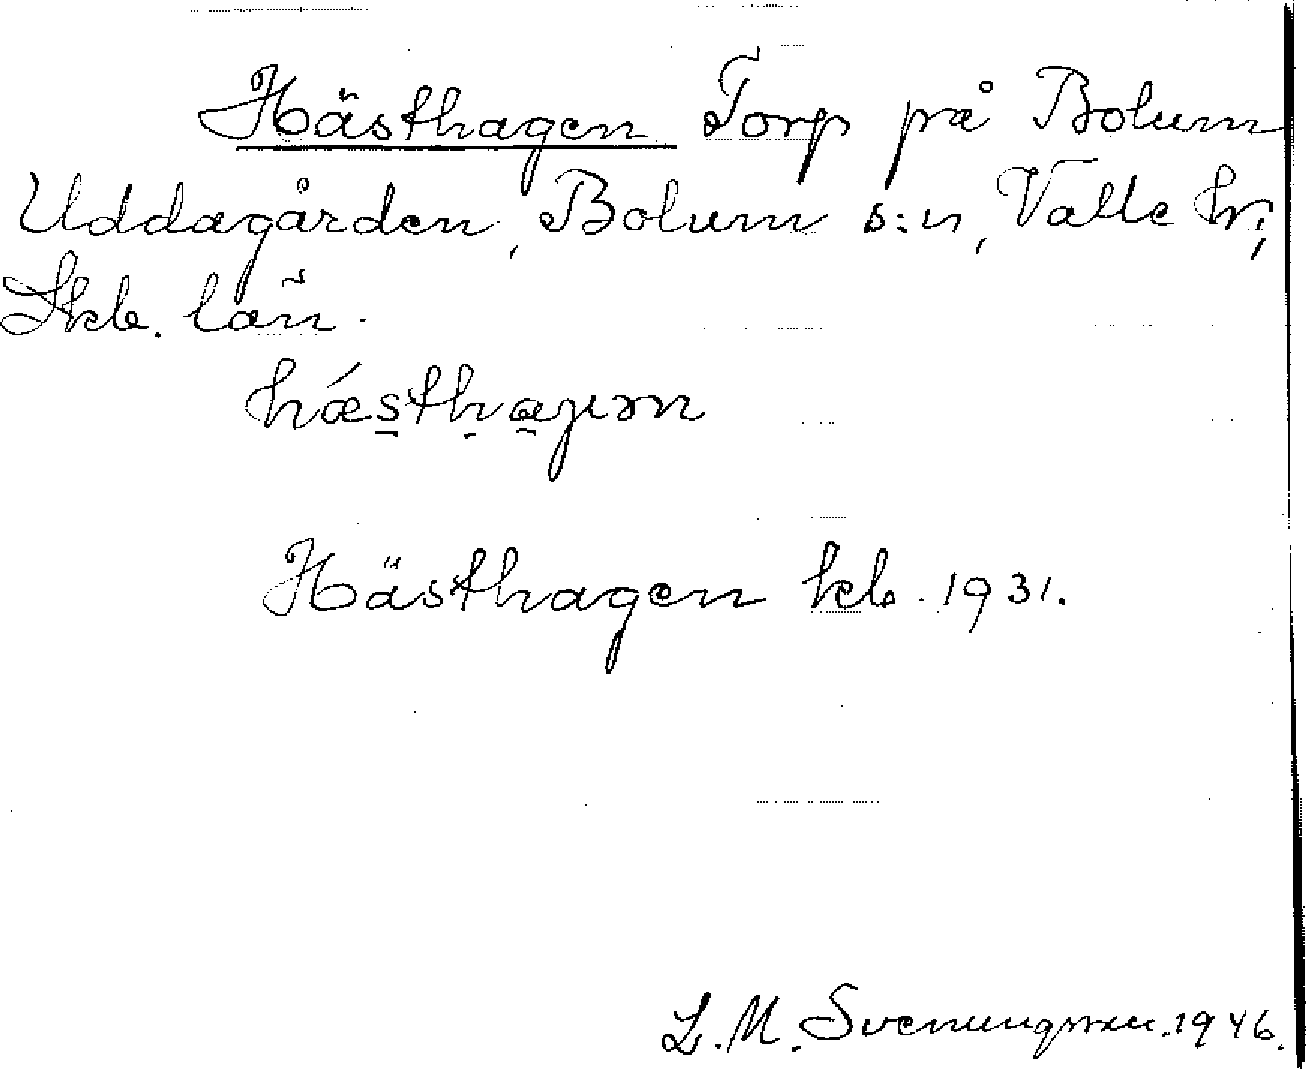 Hästhagen Torp på Bolum
Uddagården, Bolum s:n, Valle hd,
Skb. län.
hǽsthaɡən
Hästhagen kb. 1931.
L. M. Svenungsson. 1946.